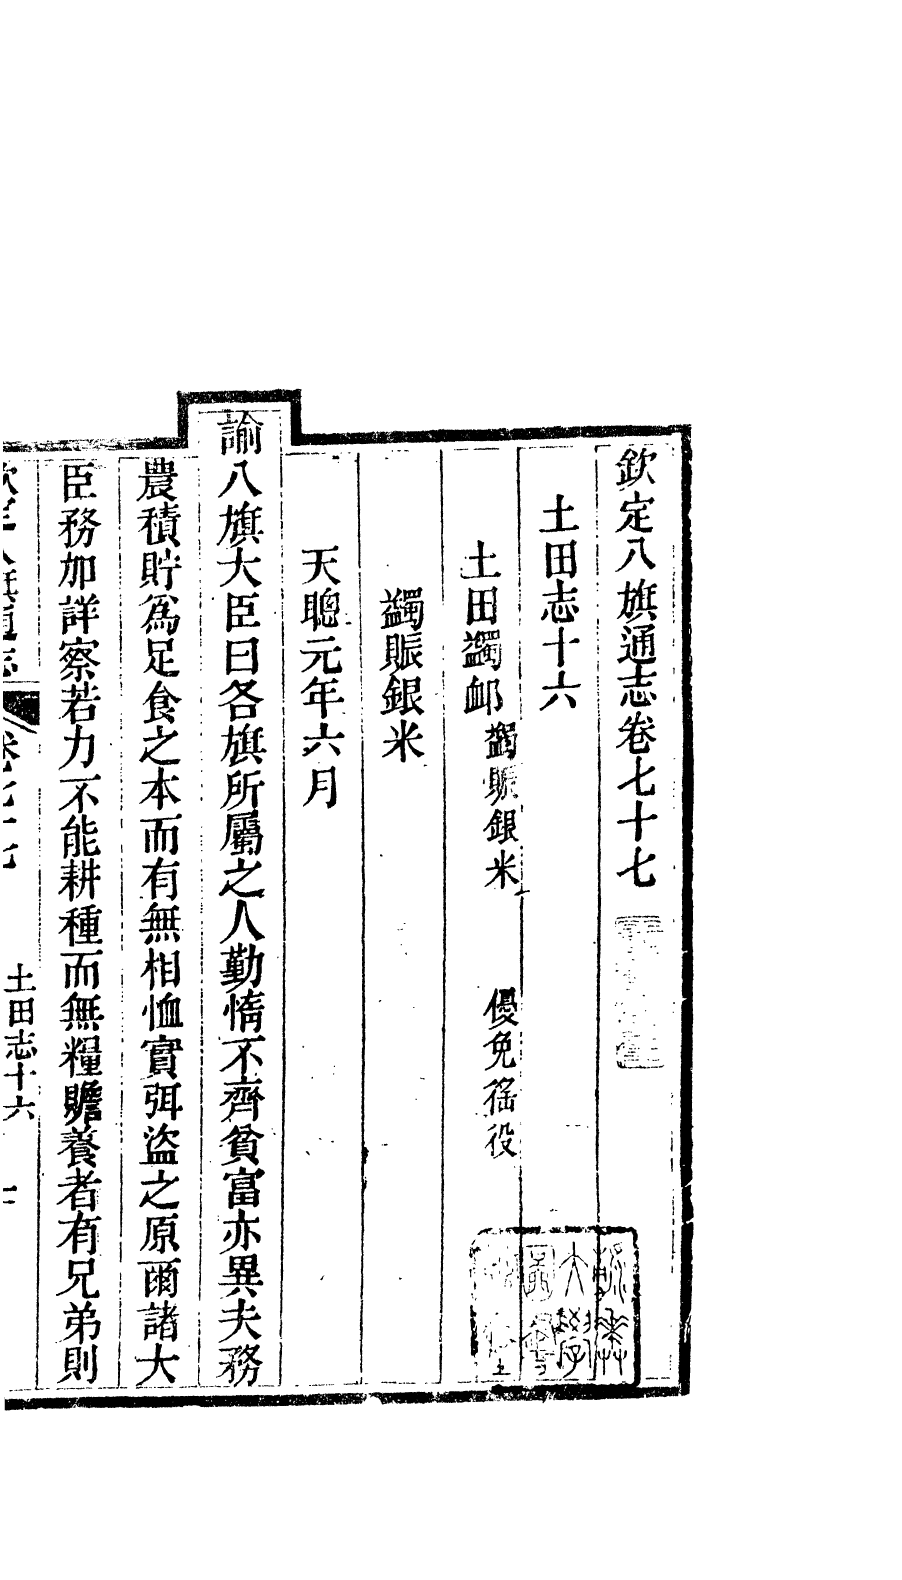 欽定八旗通志卷七十七
土田志十六
土田蠲卹 蠲賑銀米 優免徭役
蠲賑銀米
天聰元年六月
諭八旗大臣曰各旗所屬之人勤惰不齊貧富亦異夫務
農積貯爲足食之本而有無相恤實弭盜之原爾諸大
臣務加詳察若力不能耕種而無糧贍養者有兄弟則
土田志十六